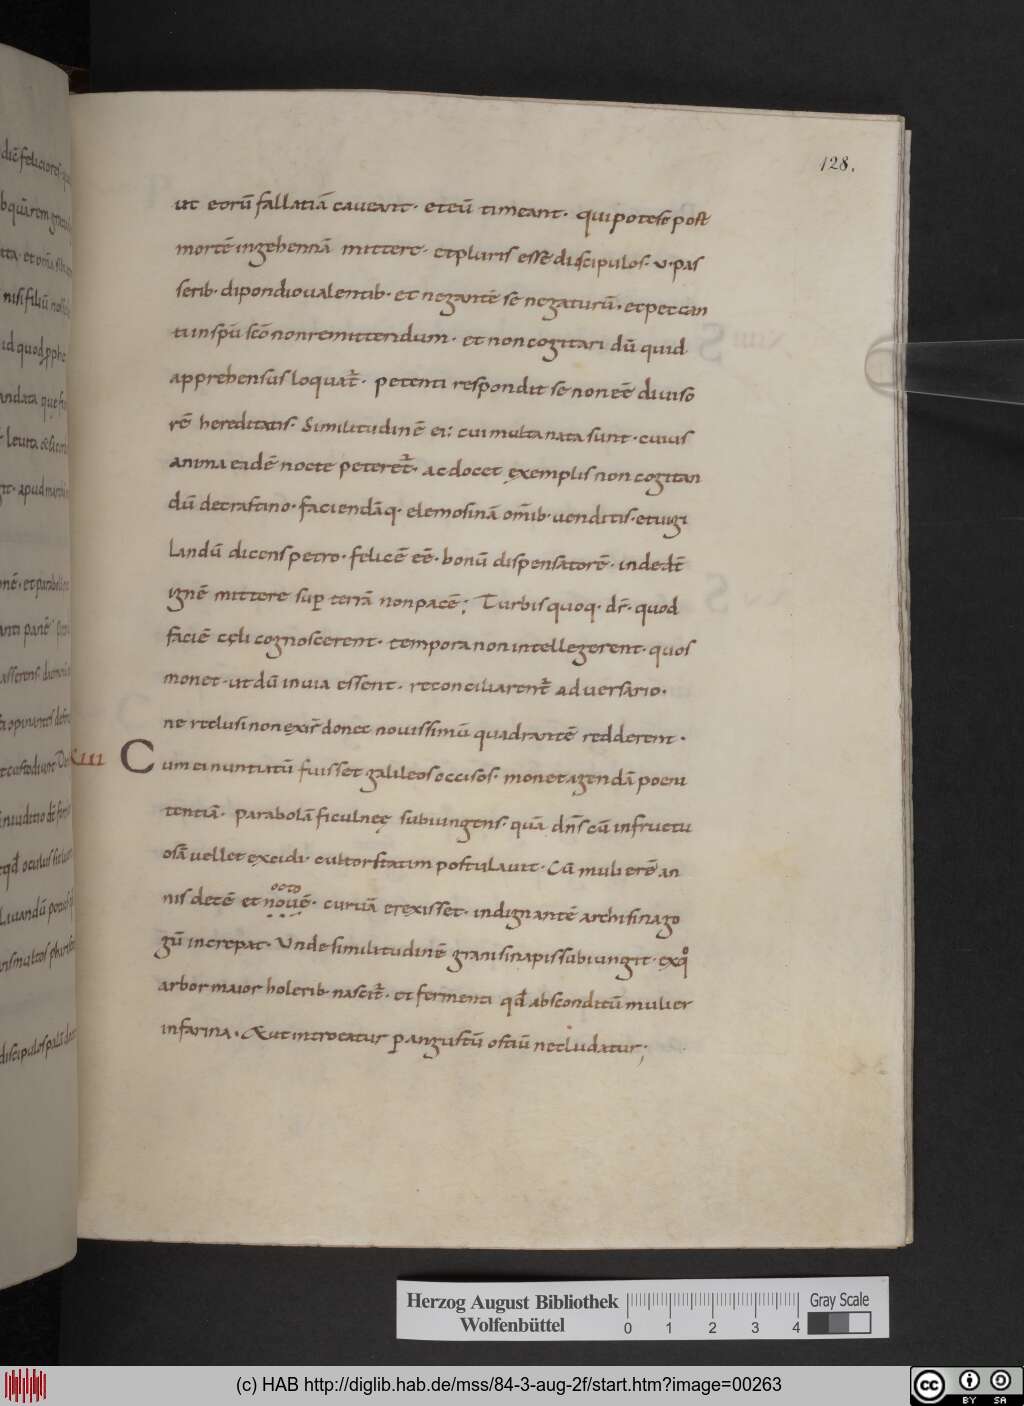 128.
ut eorū fallatiā caveant · et eū timeant · qui potest post
mortē ingehennā mittere · et pluris esse discipulos · v · pas
serib · dipondio ualentib · et negantē se negaturū · et peccan
ti in spū scō non remittendum · et non cogitari dū quid
apprehensus loquat̄ · petenti respondit se non eē diuiso
rē hereditatis · Similitudinē ei: cui multa nata sunt · cuius
anima eadē nocte peteret̄ · ac docet exemplis non cogitan
dū de crastino · faciendāq · elemosinā om̄ib · uenditis · et uigi
landū dicens petro · felicē eē · bonū dispensatorē · inde
ignē mittere sup terrā non pacē; Turbis quoq · dr̄ · quod
faciē cęli cognoscerent · tempora non intellegerent · quos
monet · ut dū in uia essent · reconciliarent̄ adversario ·
ne reclusi non exir̄ donec nouissimū quadrantē redderent ·
XIII Cum ei nuntiatū fuisset galileos occisos · monet agendā poeni
tentiā · parabolā ficulneę subiungens · quā dn̄s cū infructu
osā uellet excidi · cultor statim postulauit · Cū mulierē an
octo
nis decē et nouē · curuā erexisset · indignantē archisinago
gū increpat · Unde similitudinē grani sinapis subiungit · ex q̊
arbor maior holerib nascit̄ · et fermenti qd̄ absconditū mulier
in farina · & ut introeatur p angustū ostiū ne cludatur;
Herzog August Bibliothek
Wolfenbüttel
0 1 2 3 4
Gray Scale
(c) HAB http://diglib.hab.de/mss/84-3-aug-2f/start.htm?image=00263
cc BY SA